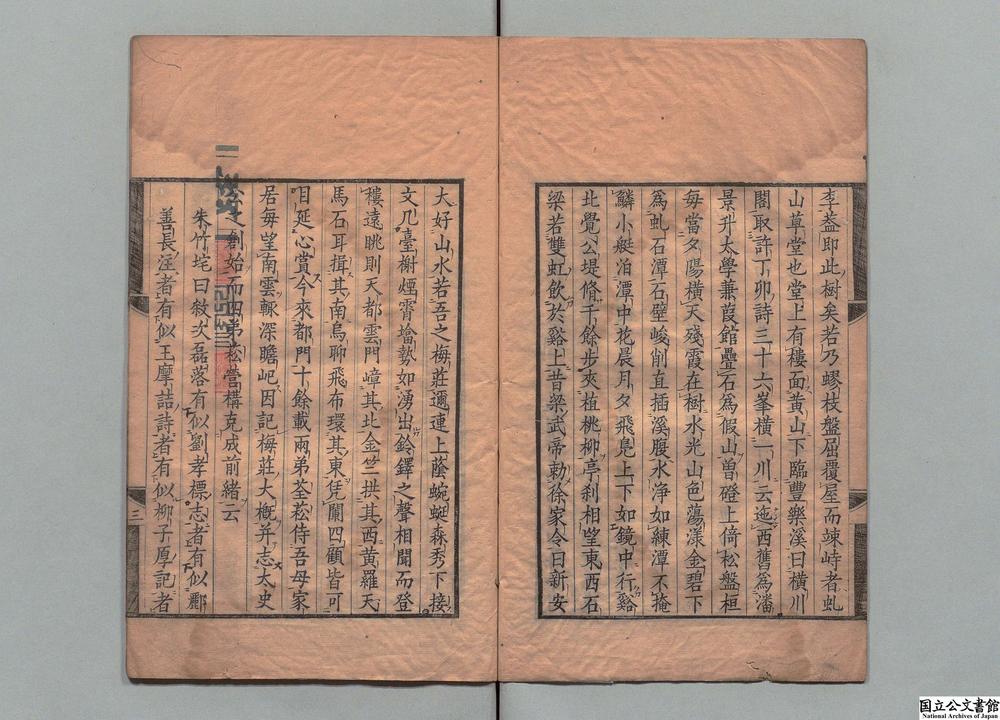 李益即此樹矣若乃蟉枝盤屈覆屋而竦峙者虬
山草堂也堂上有樓面黃山下臨豐樂溪曰橫川
閣取許丁卯詩三十六峯橫一川云迤西舊為潘
景升太學蒹葭館疊石為假山曾磴上倚松盤桓
每當夕陽橫天殘霞在樹水光山色蕩漾金碧下
為虬石潭石壁峻削直插溪腹水净如練潭不掩
鱗小艇泊潭中花晨月夕飛鳧上下如鏡中行谿
北覺公堤脩千餘步夾植桃柳亭刹相望東西石
梁若雙虹飲於谿上昔梁武帝勅徐家令曰新安
大好山水若吾之梅莊邇連上蔭蜿蜒森秀下接
文几臺榭煙霄墖勢如湧出鈴鐸之聲相聞而登
樓遠眺則天都雲門嶂其北金竺拱其西黃羅天
馬石耳揖其南烏聊飛布環其東凭闌四顧皆可
目延心賞今來都門十餘載兩弟荃菘侍吾母家
居每望南雲輒深瞻屺因記梅莊大槪并志太史
公之創始而四弟菘營構克成前緒云
朱竹垞曰敍次磊落有似劉孝標志者有似酈
善長涇者有似王摩詰詩者有似柳子厚記者
三
国立公文書館
National Archives of Japan